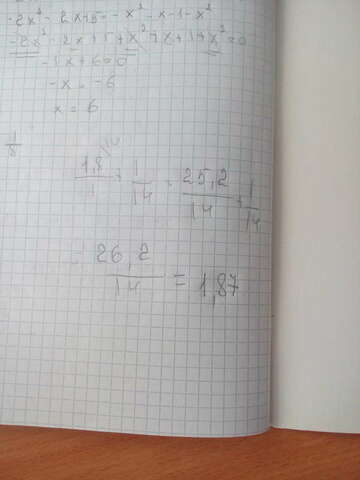 -2x² - 2x + 5 = -x² - x - 1 - x²
-2x² - 2x + 5 + x² + x + 1 + x² = 0
-1x + 6 = 0
-x = -6
x = 6
1/8
1,8/ + 1/14 = 25,2/14 + 1/14
26,2/14 = 1,87